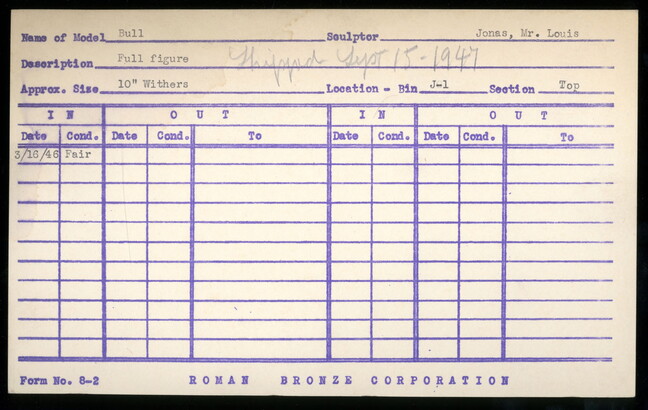 Name of Model Bull Sculptor Jonas, Mr. Louis
Description Full figure Shipped Sept 15-1947
Approx. Size 10" Withers Location - Bin J-1 Section Top
IN OUT IN OUT
Date Cond. Date Cond. To Date Cond. Date Cond. To
3/16/46 Fair
Form No. 8-2 ROMAN BRONZE CORPORATION